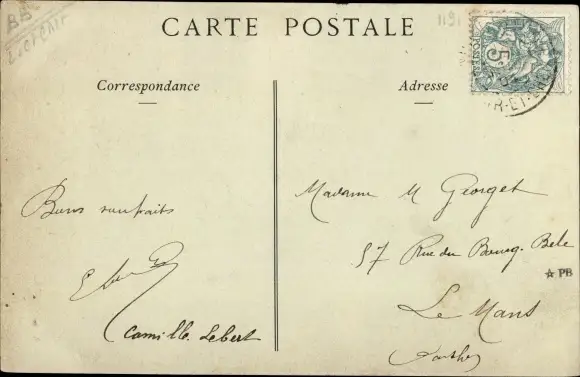 CARTE POSTALE
Correspondance
Adresse
5
R-ET-
Bons souhaits
Camille Lebert
Madame M Georget
57 Rue du Bourg-Bele
☆ PB
Le Mans
Sarthe